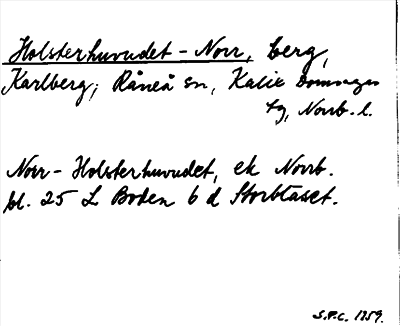 Holsterhuvudet - Norr, berg,
Karlberg; Råneå sn, Kalix Domsagas
tg, Norrb. l.
Norr-Holsterhuvudet, ek Norrb.
bl. 25 L Boden 6 d Storblåset.
S.F.C. 1959.